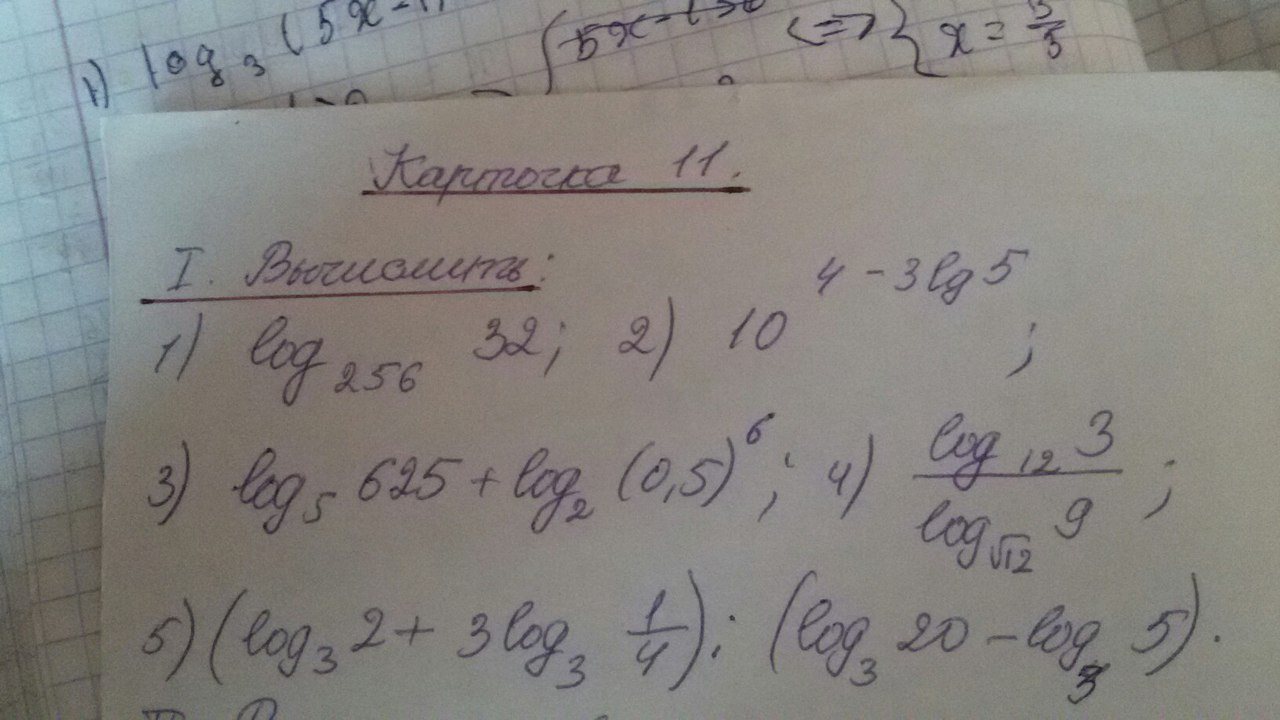 1) log₃(5x-1
5x-1>0 <=> { x = 3/5
Карточка 11.
I. Вычислить:
1) log₂₅₆ 32; 2) 10^(4-3lg5);
3) log₅ 625 + log₂ (0,5)⁶; 4) log₁₂ 3 / log_√12 9;
5) (log₃ 2 + 3log₃ 1/4) : (log₃ 20 - log₃ 5).